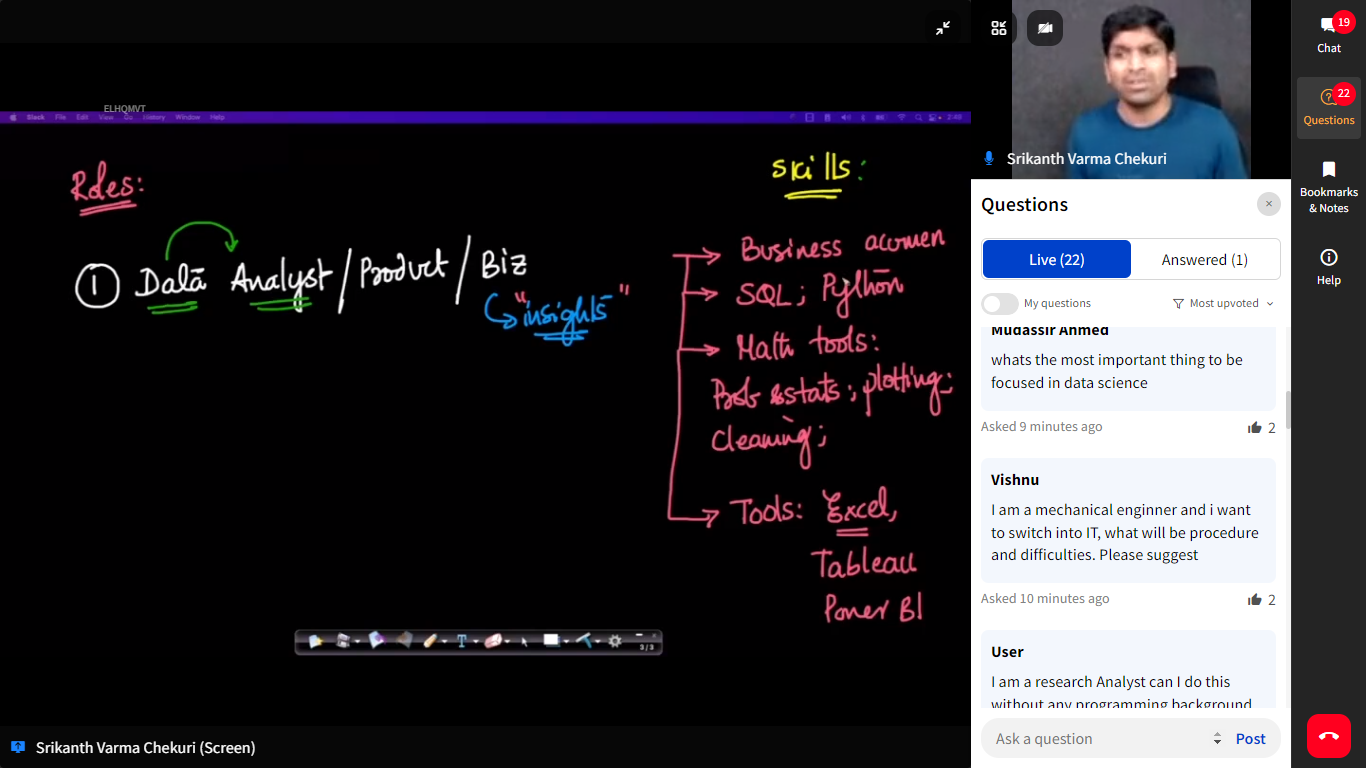 ELHQMVT
Slack File Edit View Go History Window Help
2:40
Roles:
Skills:
① Data Analyst / Product / Biz
"insights"
Business acumen
SQL; Python
Math tools:
Prob & stats; plotting;
cleaning;
Tools: Excel,
Tableau
Power BI
3/3
Srikanth Varma Chekuri (Screen)
Srikanth Varma Chekuri
Questions
Live (22)
Answered (1)
My questions
Most upvoted
Mudassir Ahmed
whats the most important thing to be
focused in data science
Asked 9 minutes ago
2
Vishnu
I am a mechanical enginner and i want
to switch into IT, what will be procedure
and difficulties. Please suggest
Asked 10 minutes ago
2
User
I am a research Analyst can I do this
without any programming background
Ask a question
Post
19
Chat
22
Questions
Bookmarks
& Notes
Help